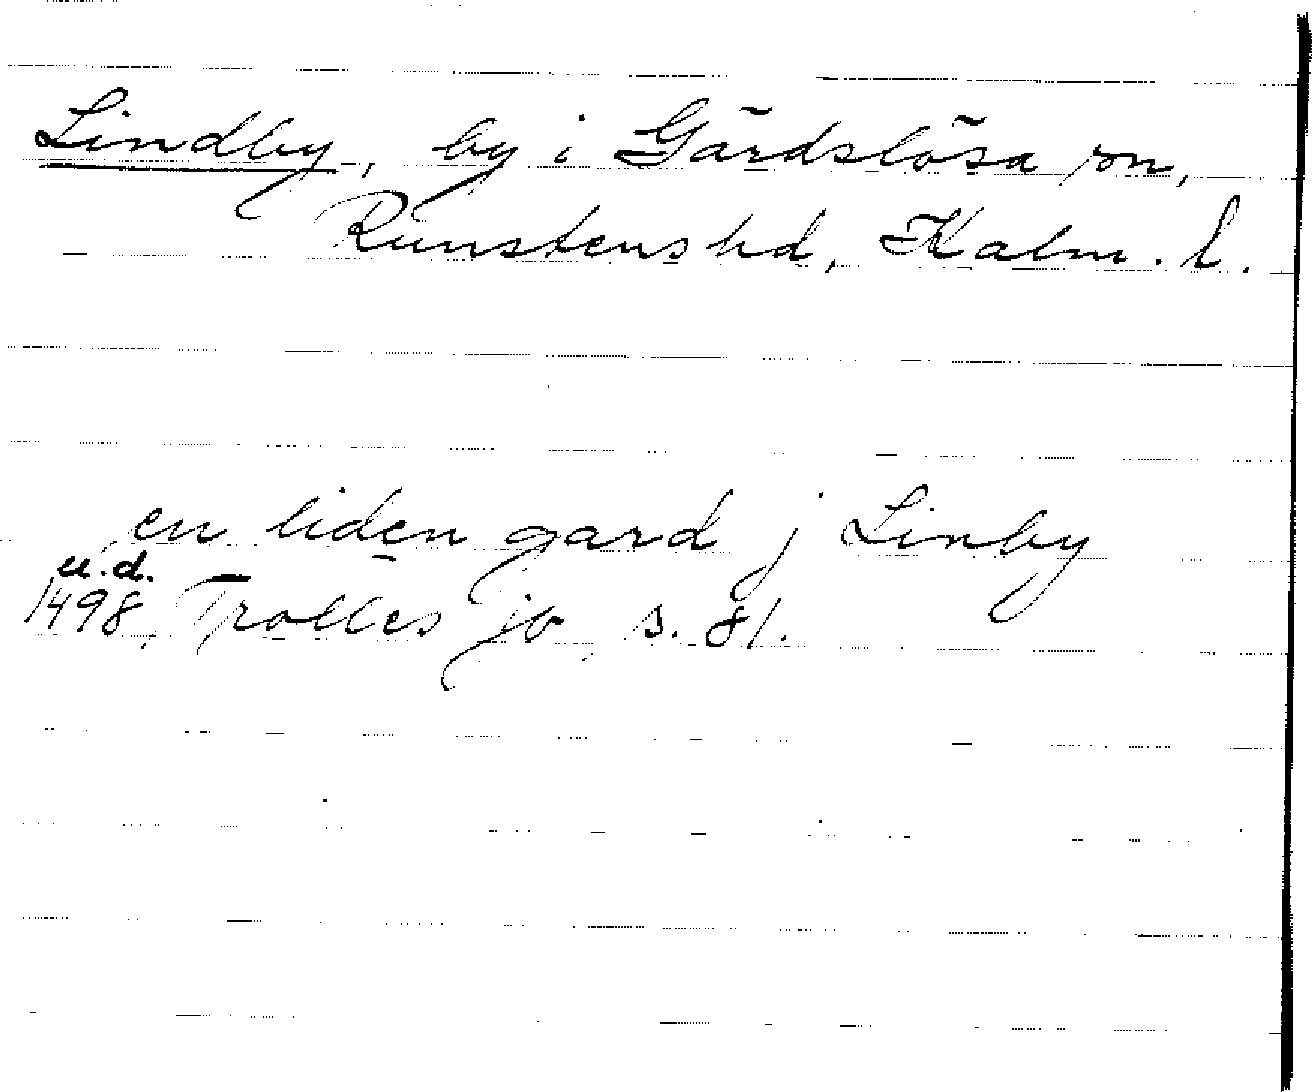 Lindby, by i Gärdslösa sn,
Runstens hd, Kalm. l.
en liden gard j Linby
u.d.
1498, Trolles jb, s. 81.